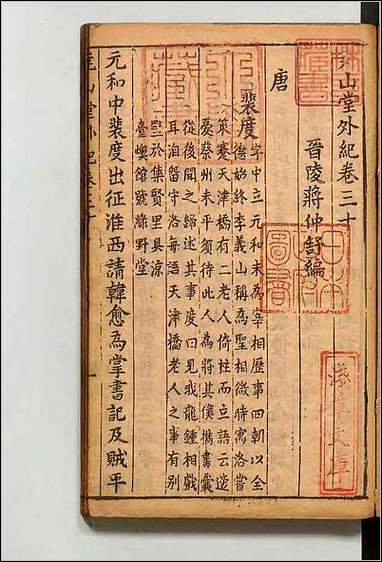 堯山堂外紀卷三十
晉陵蔣仲舒編
唐
裴度
字中立元和末為宰相歷事四朝以全
德始終李義山稱為聖相微時寓洛嘗
策蹇天津橋有二老人倚柱而立語云迨
憂蔡州未平須待此人為將其僕攜書囊
從後聞之歸述其事度曰見我龍鍾相戲
耳洎留守洛每語天津橋老人之事有別
墅於集賢里具涼
臺嶼館號綠野堂
元和中裴度出征淮西請韓愈為掌書記及賊平
堯山堂外紀卷三十
一